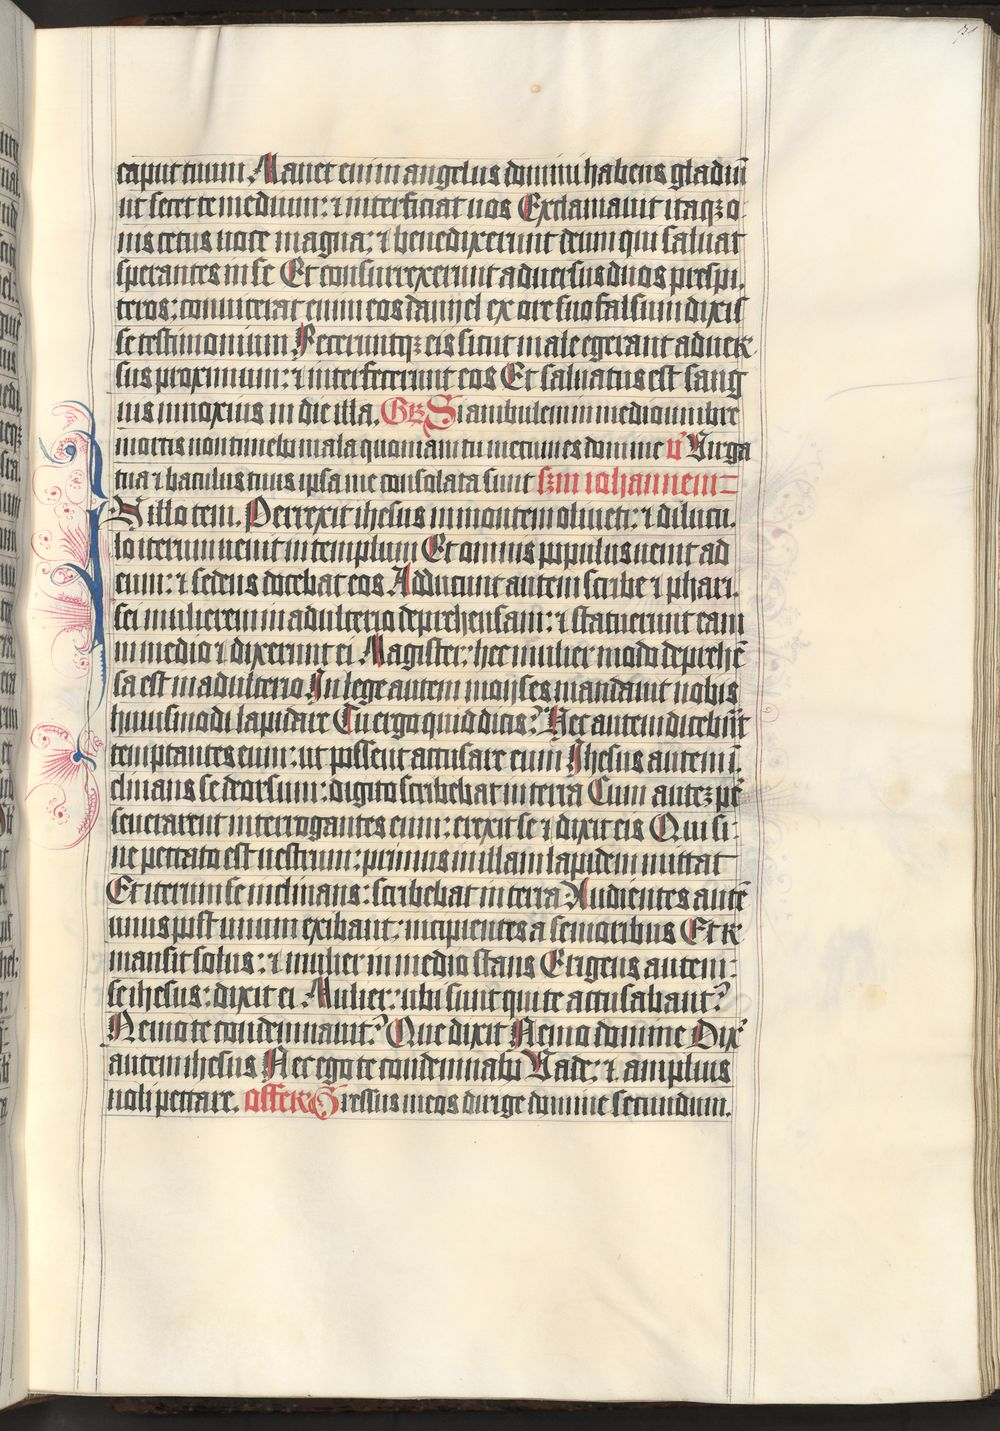 caput tuum Manet enim angelus domini habens gladiū
ut secet te medium: ⁊ interficiat uos Exclamauit itaqꝫ o
nis cetus uoce magna: ⁊ benedixerunt deum qui saluat
sperantes in se Et consurrexerunt aduersus duos prespi.
teros: conuicerat enim eos daniel ex ore suo falsum dixis
se testimonium Feceruntqꝫ eis sicut male egerant aduer
sus proximum: ⁊ interfecerunt eos Et saluatus est sang
uis innoxius in die illa. Gr̄ Si ambulem in medio umbre
mortis non timebo mala quoniam tu mecum es domine v̄ Uirga
tua ⁊ baculus tuus ipsa me consolata sunt scd̄m iohannem
In illo tem. Perrexit ihesus in montem oliueti: ⁊ dilucu.
lo iterum uenit in templum Et omnis populus uenit ad
eum: ⁊ sedens docebat eos Adducunt autem scribe ⁊ phari.
sei mulierem in adulterio deprehensam: ⁊ statuerunt eam
in medio ⁊ dixerunt ei Magister: hec mulier modo deprehē
sa est in adulterio In lege autem moyses mandauit nobis
huiusmodi lapidare Tu ergo quid dicis? Hec autem dicebāt
temptantes eum: ut possent accusare eum Ihesus autem ī.
clinans se deorsum: digito scribebat in terra Cum autēꝫ pē
seuerarent interrogantes eum: erexit se ⁊ dixit eis Qui si:
ne peccato est uestrum: primus in illam lapidem mittat
Et iterum se inclinans: scribebat in terra Audientes autē
unus post unum exibant: incipientes a senioribus Et re
mansit solus: ⁊ mulier in medio stans Erigens autem:
se ihesus: dixit ei Mulier: ubi sunt qui te accusabant?
Nemo te condemnauit? Que dixit Nemo domine Dix̄
autem ihesus Nec ego te condemnabo Uade: ⁊ amplius
noli peccare. Offer̄ Gressus meos dirige domine secundum.